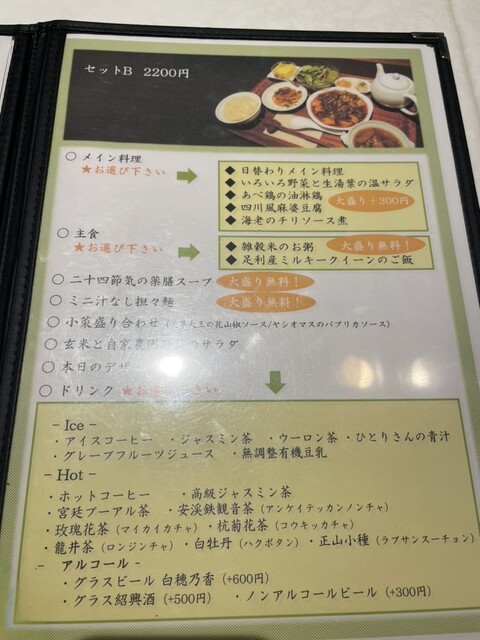 セットB 2200円
○ メイン料理
★お選び下さい
◆ 日替わりメイン料理
◆ いろいろ野菜と生湯葉の温サラダ
◆ あべ鶏の油淋鶏
◆ 四川風麻婆豆腐
◆ 海老のチリソース煮
大盛り+300円
○ 主食
★お選び下さい
◆ 雑穀米のお粥 大盛り無料!
◆ 足利産ミルキークイーンのご飯
○ 二十四節気の薬膳スープ 大盛り無料!
○ ミニ汁なし担々麺 大盛り無料!
○ 小菜盛り合わせ 大王の花山椒ソース/ヤシオマスのパプリカソース)
○ 玄米と自家農園 のサラダ
○ 本日のデザ
○ ドリンク ★お選び下さい
- Ice -
・アイスコーヒー ・ジャスミン茶 ・ウーロン茶 ・ひとりさんの青汁
・グレープフルーツジュース ・無調整有機豆乳
- Hot -
・ホットコーヒー ・高級ジャスミン茶
・宮廷プーアル茶 ・安渓鉄観音茶(アンケイテッカンノンチャ)
・玫瑰花茶(マイカイカチャ) ・杭菊花茶(コウキッカチャ)
・龍井茶(ロンジンチャ) ・白牡丹(ハクボタン) ・正山小種(ラプサンスーチョン)
- アルコール -
・グラスビール 白穂乃香(+600円)
・グラス紹興酒(+500円) ・ノンアルコールビール(+300円)